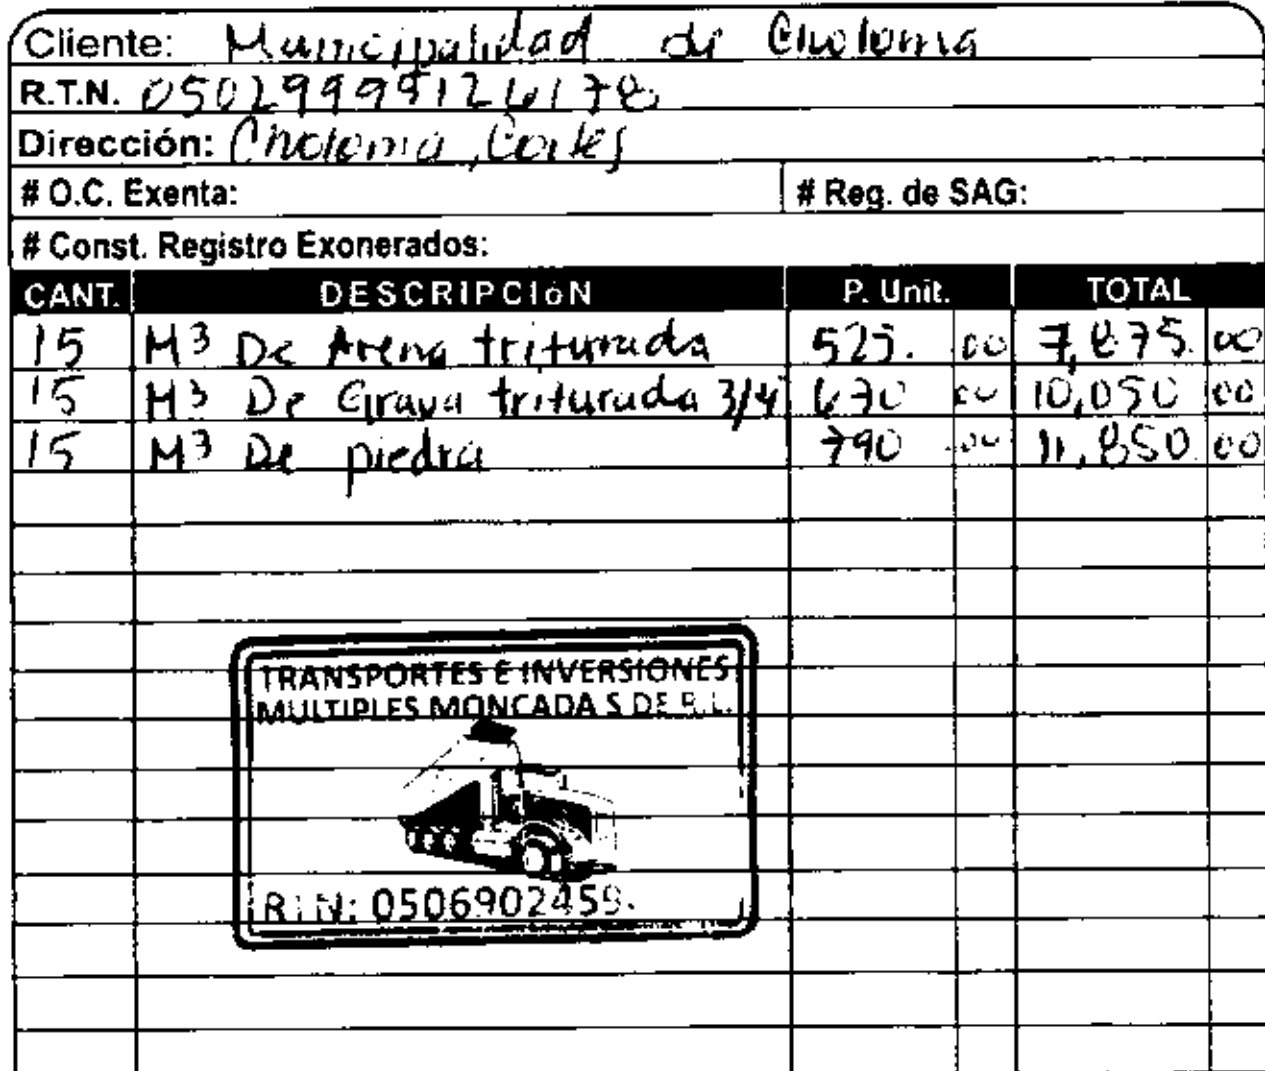 Cliente: Municipalidad de Choloma
R.T.N.
Dirección: Choloma, Cortes
# O.C. Exenta: # Reg. de SAG:
# Const. Registro Exonerados:
CANT. DESCRIPCIóN P. Unit. TOTAL
15 M³ De Arena triturada 525. 00 7,875. 00
15 M³ De Grava triturada 3/4 670 00 10,050 00
15 M³ De piedra 790 00 11,850 00
TRANSPORTES E INVERSIONES
MULTIPLES MONCADA S DE R.L.
RTN: 0506902459